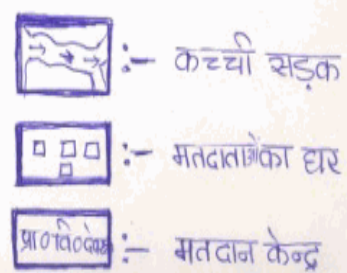 :- कच्ची सड़क
:- मतदाताओं का घर
प्रा०वि० :- मतदान केन्द्र